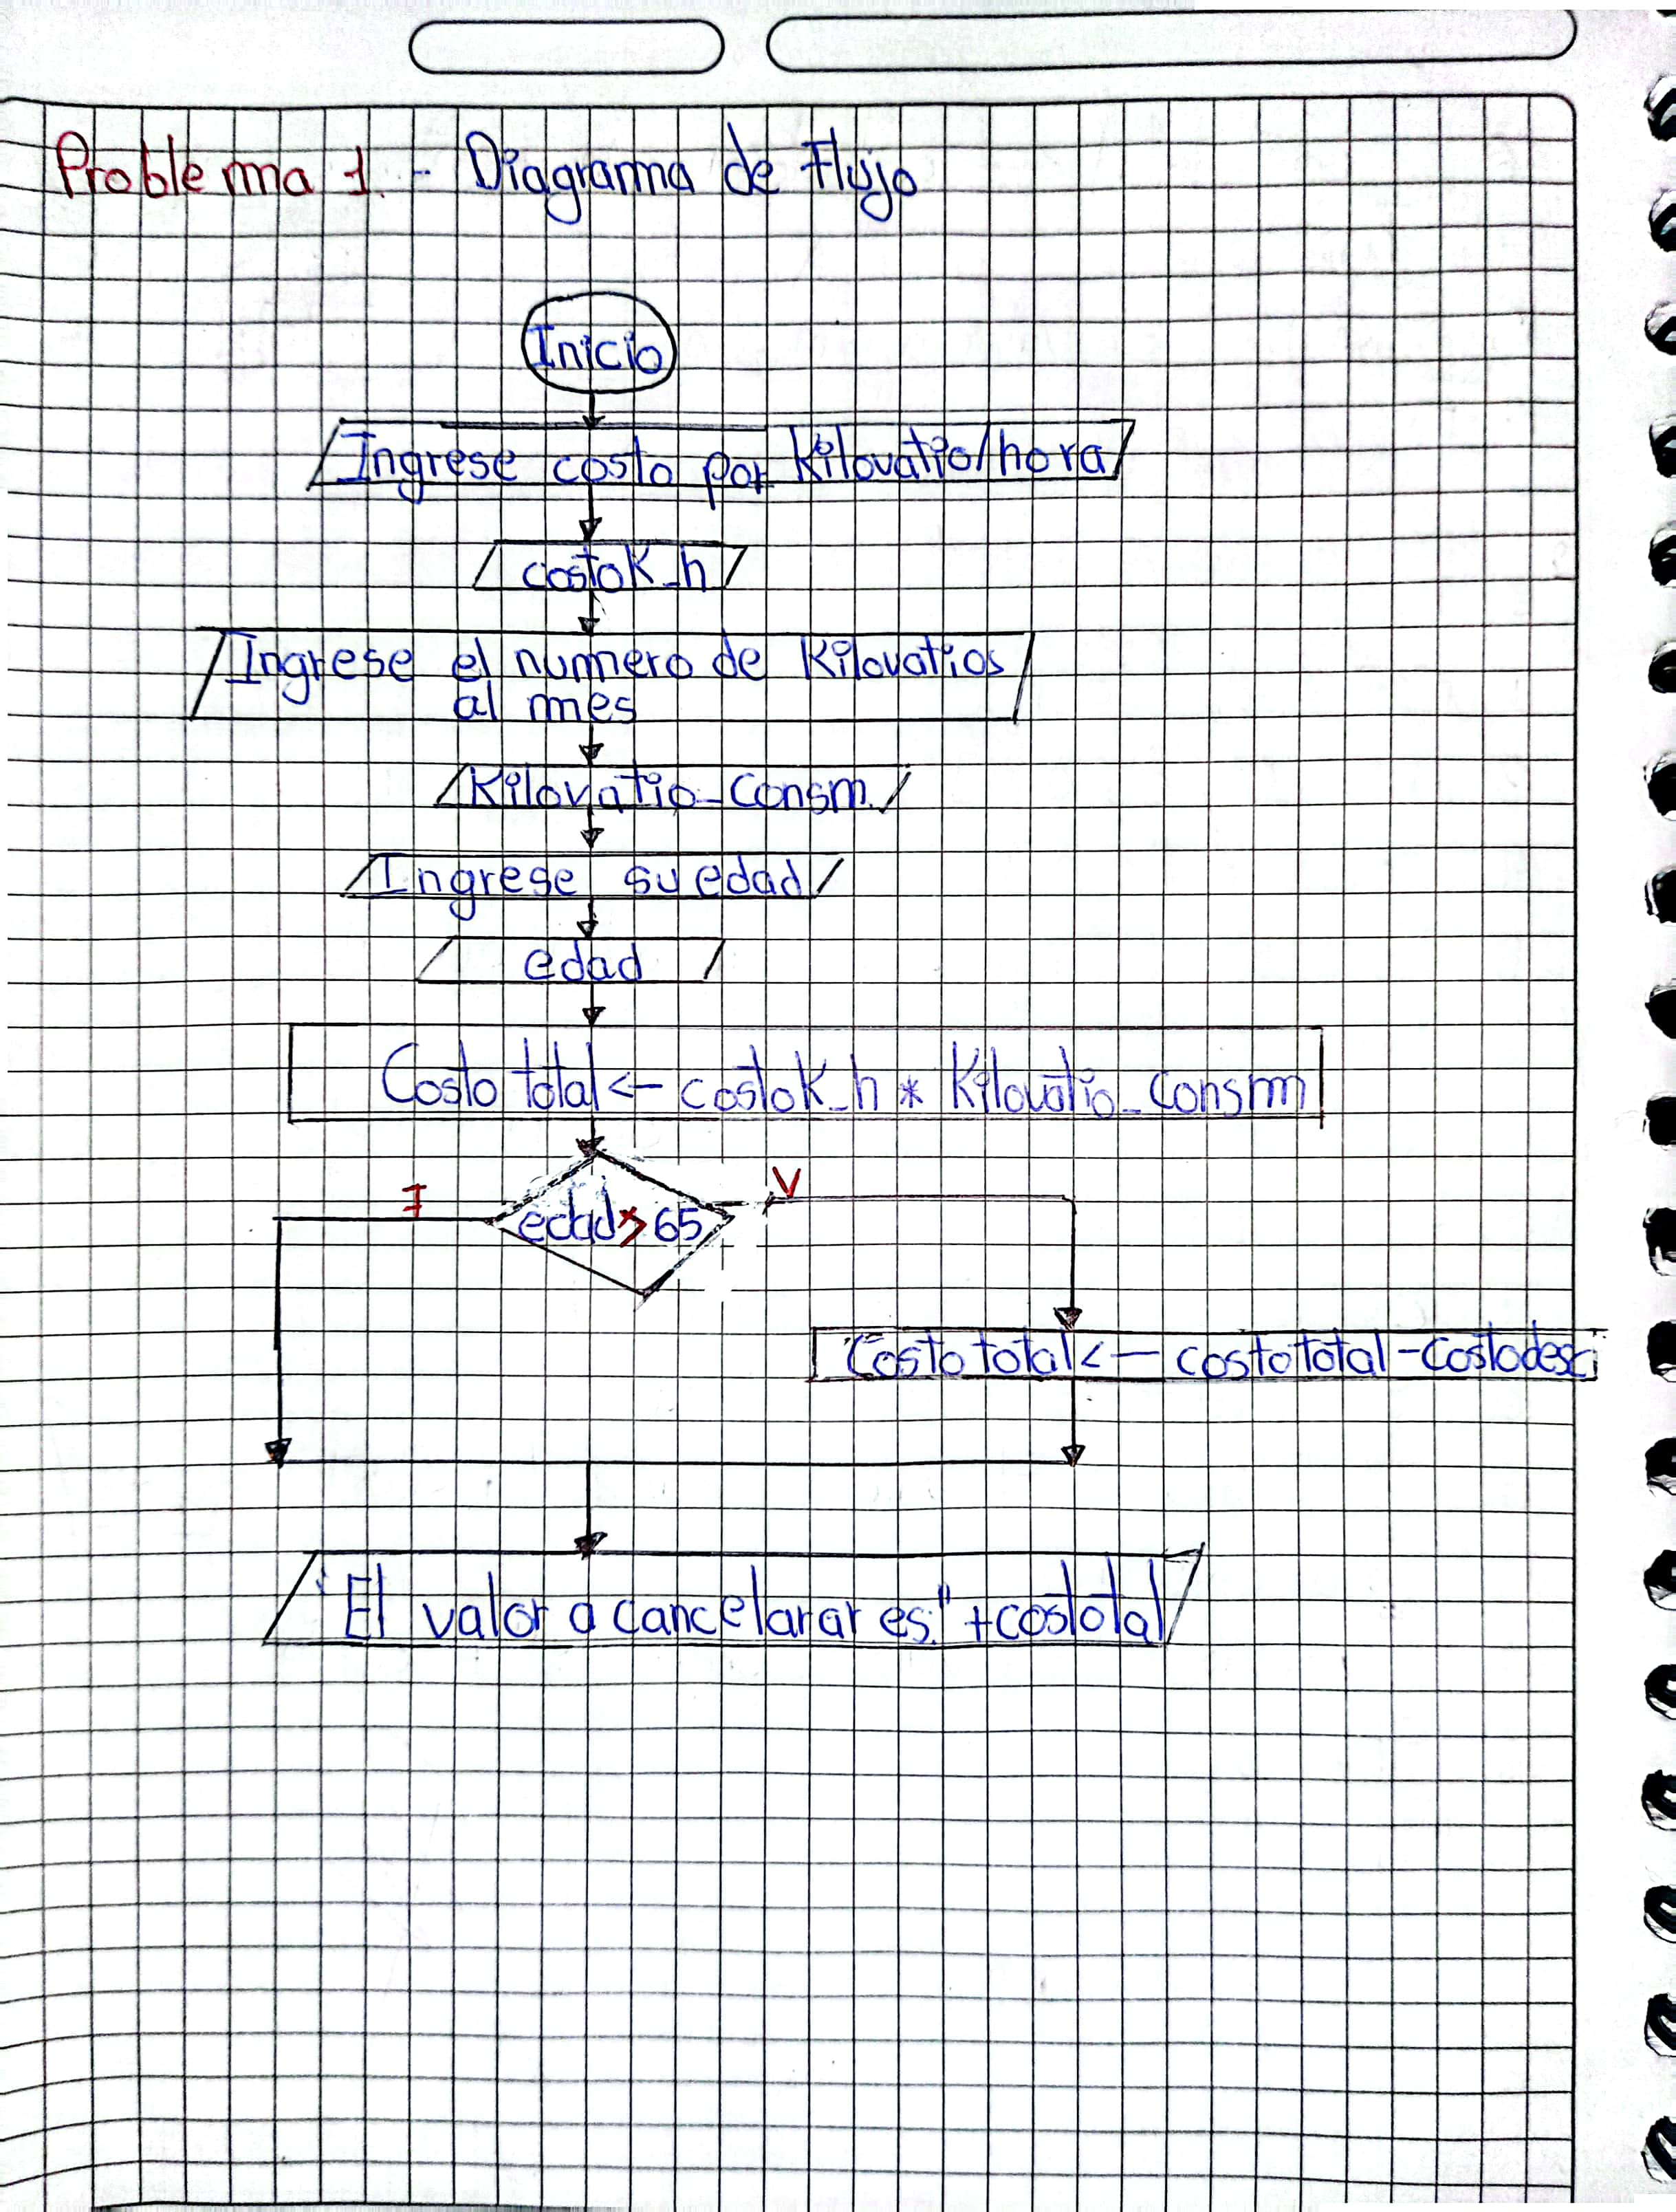 Problema 1. - Diagrama de Flujo
Inicio
Ingrese costo por Kilovatio/hora
costoK_h
Ingrese el numero de Kilovatios
al mes
Kilovatio_Consm.
Ingrese su edad
edad
Costo total <- costoK_h * Kilovatio_consm
F
V
edad > 65
Costo total <- costo total - Costodesc
"El valor a cancelarar es:" + costotal